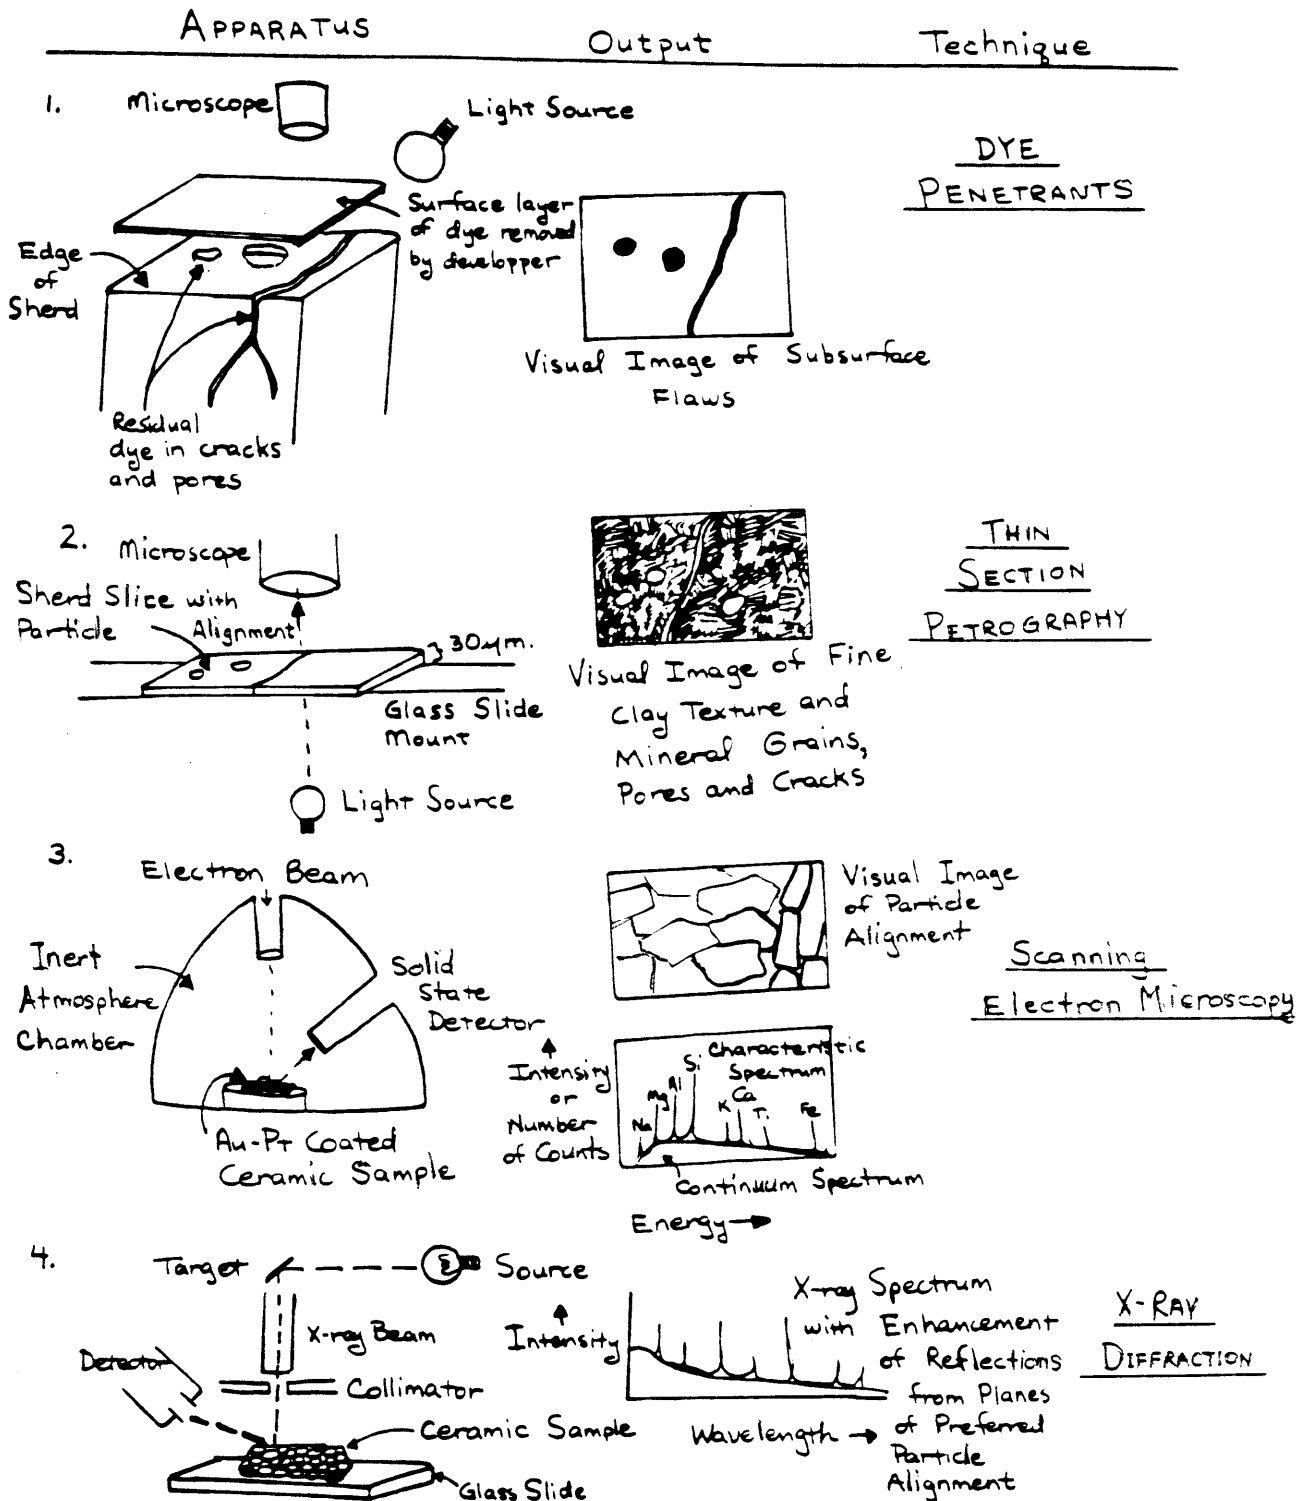 APPARATUS
Output
Technique
1.
Microscope
Light Source
DYE
PENETRANTS
Surface layer
of dye removed
by developper
Edge
of
Sherd
Visual Image of Subsurface
Flaws
Residual
dye in cracks
and pores
2.
Microscope
Sherd Slice with
Particle Alignment
30μm.
Glass Slide
Mount
Light Source
THIN
SECTION
PETROGRAPHY
Visual Image of Fine
Clay Texture and
Mineral Grains,
Pores and Cracks
3.
Electron Beam
Inert
Atmosphere
Chamber
Solid
State
Detector
Au-PT Coated
Ceramic Sample
Visual Image
of Particle
Alignment
Scanning
Electron Microscopy
Intensity
or
Number
of Counts
Characteristic
Spectrum
Na
Mg
Al
Si
K
Ca
Ti
Fe
Continuum Spectrum
Energy
4.
Target
Source
X-ray Beam
Detector
Collimator
Ceramic Sample
Glass Slide
Intensity
X-ray Spectrum
with Enhancement
of Reflections
from Planes
of Preferred
Particle
Alignment
Wavelength
X-RAY
DIFFRACTION